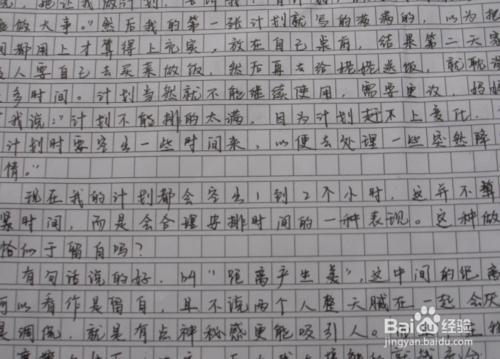 说，她让我做计划，去听我
要做大事。"然后我的第一张计划就写的满满的，以为把
间都用上才算得上充实，放在自己桌前，结果第二天家
人要自己去买菜做饭，然后再去给姥姥送饭，就耽误
多时间。计划当然就不能继续使用，需要更改，妈妈
了我说："计划不能排的太满，因为计划赶不上变化，
计划时要空出一些时间来，以便去处理一些突然降
情。"
现在我的计划都会空出1到2个小时，这并不弊
紧时间，而是会合理安排时间的一种表现。这种做
恰似于留白吗？
有句话说的好，叫"距离产生美"，这中间的距离
可以看作是留白，且不说两个人整天腻在一起会厌
是调侃，就是有点神秘感更能吸引人。
Baidu 经验
jingyan.baidu.com